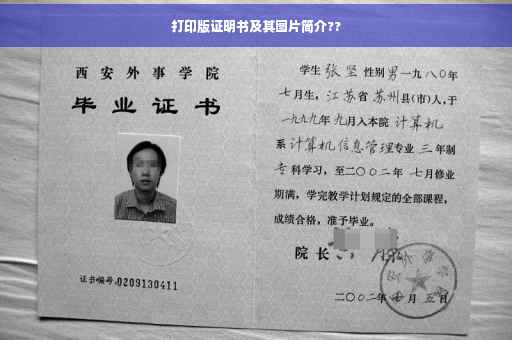 打印版证明书及其图片简介??
西安外事学院
毕业证书
证书编号:0209130411
学生 张坚 性别 男 一九八〇年
七月生,江苏省 苏州县(市)人,于
一九九九年 九月入本院 计算机
系 计算机信息管理专业 三 年制
专科学习,至二〇〇二年 七月修业
期满,学完教学计划规定的全部课程,
成绩合格,准予毕业。
院长
二〇〇二年 月 五日